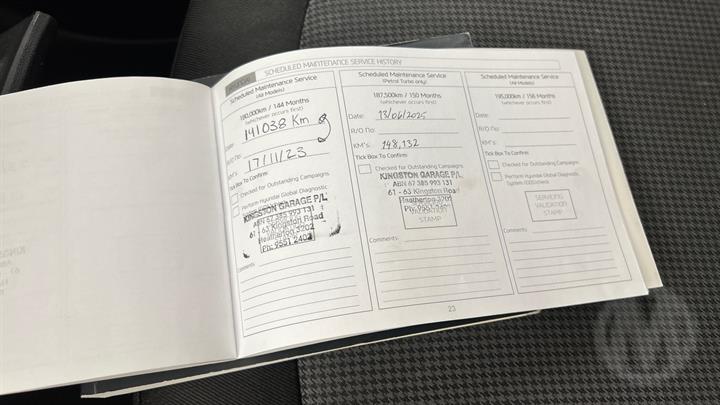 SCHEDULED MAINTENANCE SERVICE HISTORY
Scheduled Maintenance Service
(All Models)
180,000km / 144 Months
(whichever occurs first)
Date: 141038 Km
R/O no:
17/11/23
KM's:
Tick Box To Confirm:
Checked for Outstanding Campaigns
Perform Hyundai Global Diagnostic
KINGSTON GARAGE P/L
ABN 67 385 993 131
61 - 63 Kingston Road
Heatherton 3202
Ph: 9551 2402
Comments:
Scheduled Maintenance Service
(Petrol Turbo only)
187,500km / 150 Months
(whichever occurs first)
Date: 13/06/2025
R/O no:
KM's: 148,132
Tick Box To Confirm:
Checked for Outstanding Campaigns
KINGSTON GARAGE P/L
ABN 67 385 993 131
61 - 63 Kingston Road
Heatherton 3202
Ph: 9551
VALIDATION
STAMP
Comments:
Scheduled Maintenance Service
(All Models)
195,000km / 156 Months
(whichever occurs first)
Date:
R/O no:
KM's:
Tick Box To Confirm:
Checked for Outstanding Campaigns
Perform Hyundai Global Diagnostic
System (GDS) check
SERVICING
VALIDATION
STAMP
Comments:
23